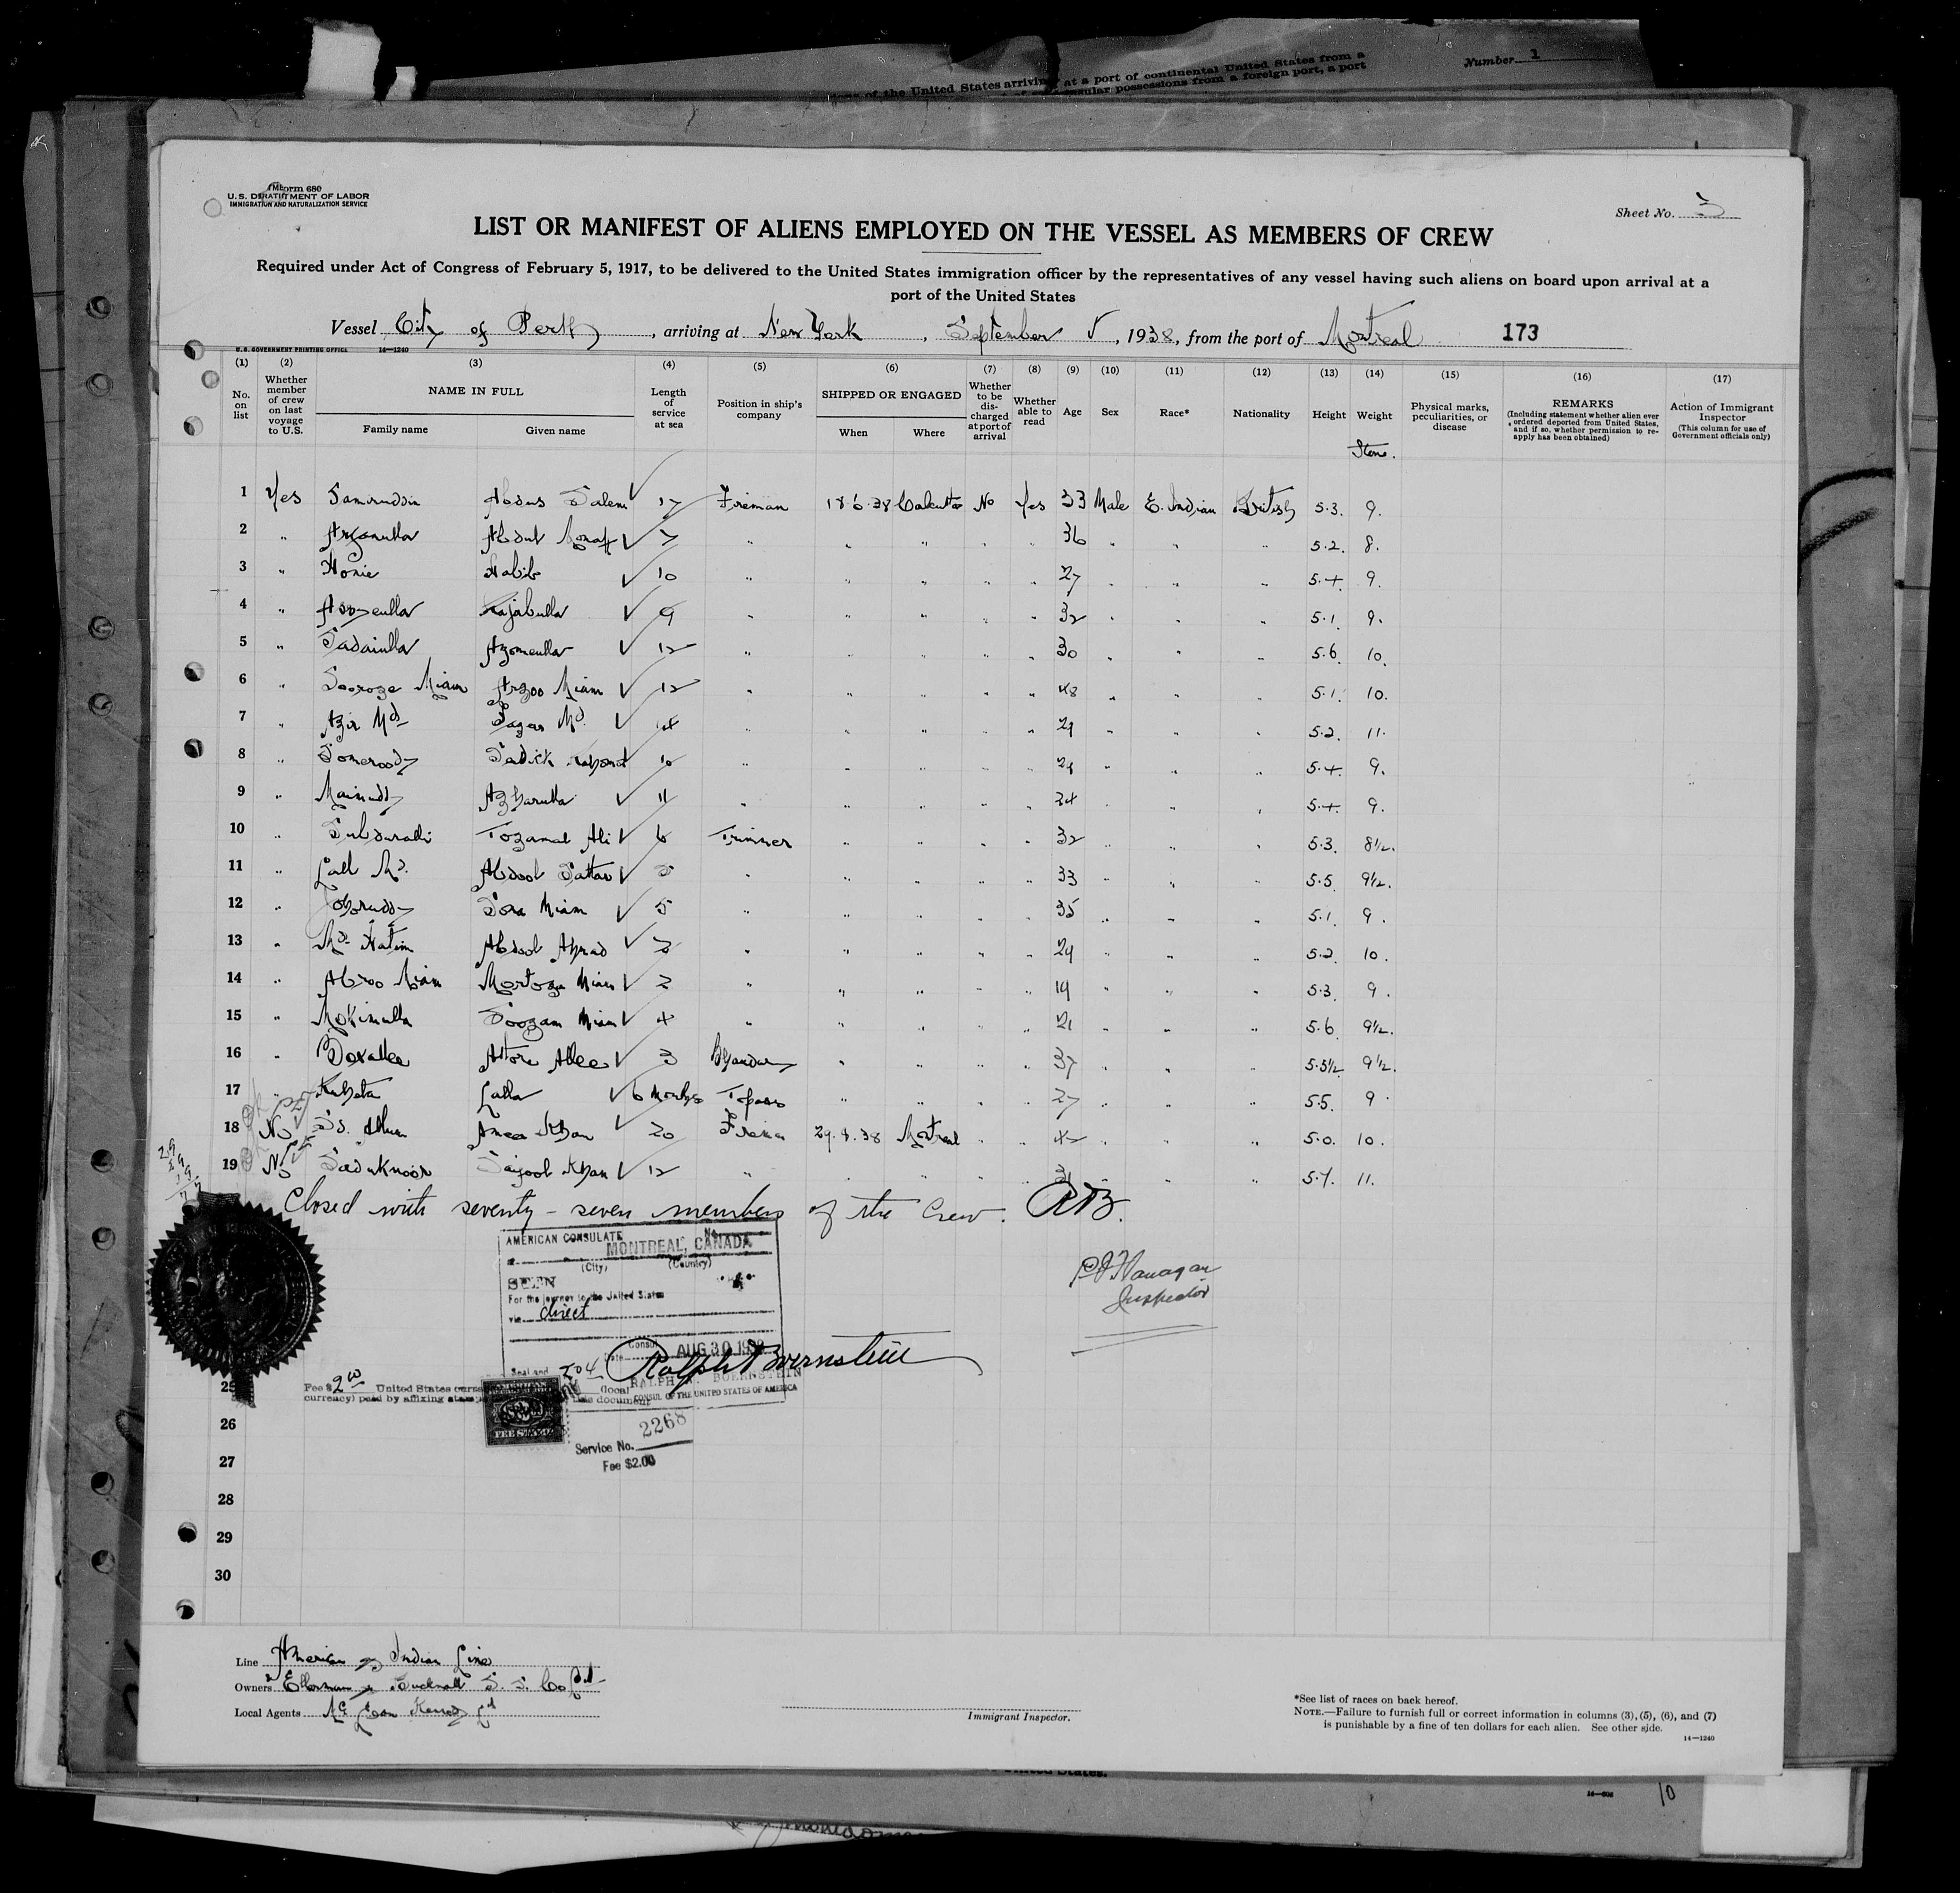 Number 1
of the United States arriving at a port of continental United States from a
insular possessions from a foreign port, a port
Form 680
U.S. DEPARTMENT OF LABOR
IMMIGRATION AND NATURALIZATION SERVICE
Sheet No. 3
LIST OR MANIFEST OF ALIENS EMPLOYED ON THE VESSEL AS MEMBERS OF CREW
Required under Act of Congress of February 5, 1917, to be delivered to the United States immigration officer by the representatives of any vessel having such aliens on board upon arrival at a
port of the United States
Vessel City of Perth, arriving at New York, September 5, 1938, from the port of Montreal 173
U.S. GOVERNMENT PRINTING OFFICE 14—1240
(1) (2) (3) (4) (5) (6) (7) (8) (9) (10) (11) (12) (13) (14) (15) (16) (17)
No. on list
Whether member of crew on last voyage to U.S.
NAME IN FULL
Family name Given name
Length of service at sea
Position in ship's company
SHIPPED OR ENGAGED
When Where
Whether to be discharged at port of arrival
Whether able to read
Age
Sex
Race*
Nationality
Height
Weight
Stone.
Physical marks, peculiarities, or disease
REMARKS
(Including statement whether alien ever ordered deported from United States, and if so, whether permission to reapply has been obtained)
Action of Immigrant Inspector
(This column for use of Government officials only)
1 Yes Samiruddin Abdus Salem 17 Fireman 18.6.38 Calcutta No Yes 33 Male E. Indian British 5.3. 9.
2 " Abdul 7 " " " " " 36 " " " 5.2. 8.
3 " Habib 10 " " " " " 27 " " " 5.4. 9.
4 " Rajabulla 9 " " " " " 32 " " " 5.1. 9.
5 " Sadaiulla Azomeulla 12 " " " " " 30 " " " 5.6. 10.
6 " Miam Arzoo Miam 12 " " " " " 48 " " " 5.1. 10.
7 " Azir Md. Md. 14 " " " " " 29 " " " 5.2. 11.
8 " Someroody Sadick 10 " " " " " 29 " " " 5.4. 9.
9 " Mainuddy Azharulla 11 " " " " " 34 " " " 5.4. 9.
10 " Tozamal Ali 6 Trimmer " " " " 32 " " " 5.3. 8½.
11 " Lall Md. Abdool Sattar " " " " " 33 " " " 5.5. 9½.
12 " Sora Miam 5 " " " " " 35 " " " 5.1. 9.
13 " Md. Hatim Abdool Ahmad " " " " " 29 " " " 5.2. 10.
14 " Abroo Miam Mortoza Miam 2 " " " " " 19 " " " 5.3. 9.
15 " Mokimulla Soogam Miam 4 " " " " " 21 " " " 5.6. 9½.
16 " Attore Allee 3 Bhandary " " " " 37 " " " 5.5½ 9½.
17 " Lalla 6 Months Topass " " " " 27 " " " 5.5. 9.
18 No Ameer Khan 20 Fireman 29.8.38 Montreal " " " " " 5.0. 10.
19 No Khan 12 " " " " " 31 " " " 5.7. 11.
Closed with seventy-seven members of the Crew. RAB.
AMERICAN CONSULATE No.
MONTREAL, CANADA
(City) (Country)
SEEN
For the journey to the United States
via direct
P J Flanagan
Inspector
Consul
Date AUG 30 1938
Seal and
Ralph A Boernstein
RALPH A. BOERNSTEIN
CONSUL OF THE UNITED STATES OF AMERICA
25
Fee $2.00 United States
(local currency) paid by affixing stamp this document
FEE STAMP
26
Service No. 2268
Fee $2.00
27
28
29
30
Line American & Indian Line
Owners Ellerman & Bucknall S. S. Co Ltd
Local Agents Mc Lean Kennedy Ltd
Immigrant Inspector.
*See list of races on back hereof.
NOTE.—Failure to furnish full or correct information in columns (3), (5), (6), and (7)
is punishable by a fine of ten dollars for each alien. See other side.
14—1240
United States.
10